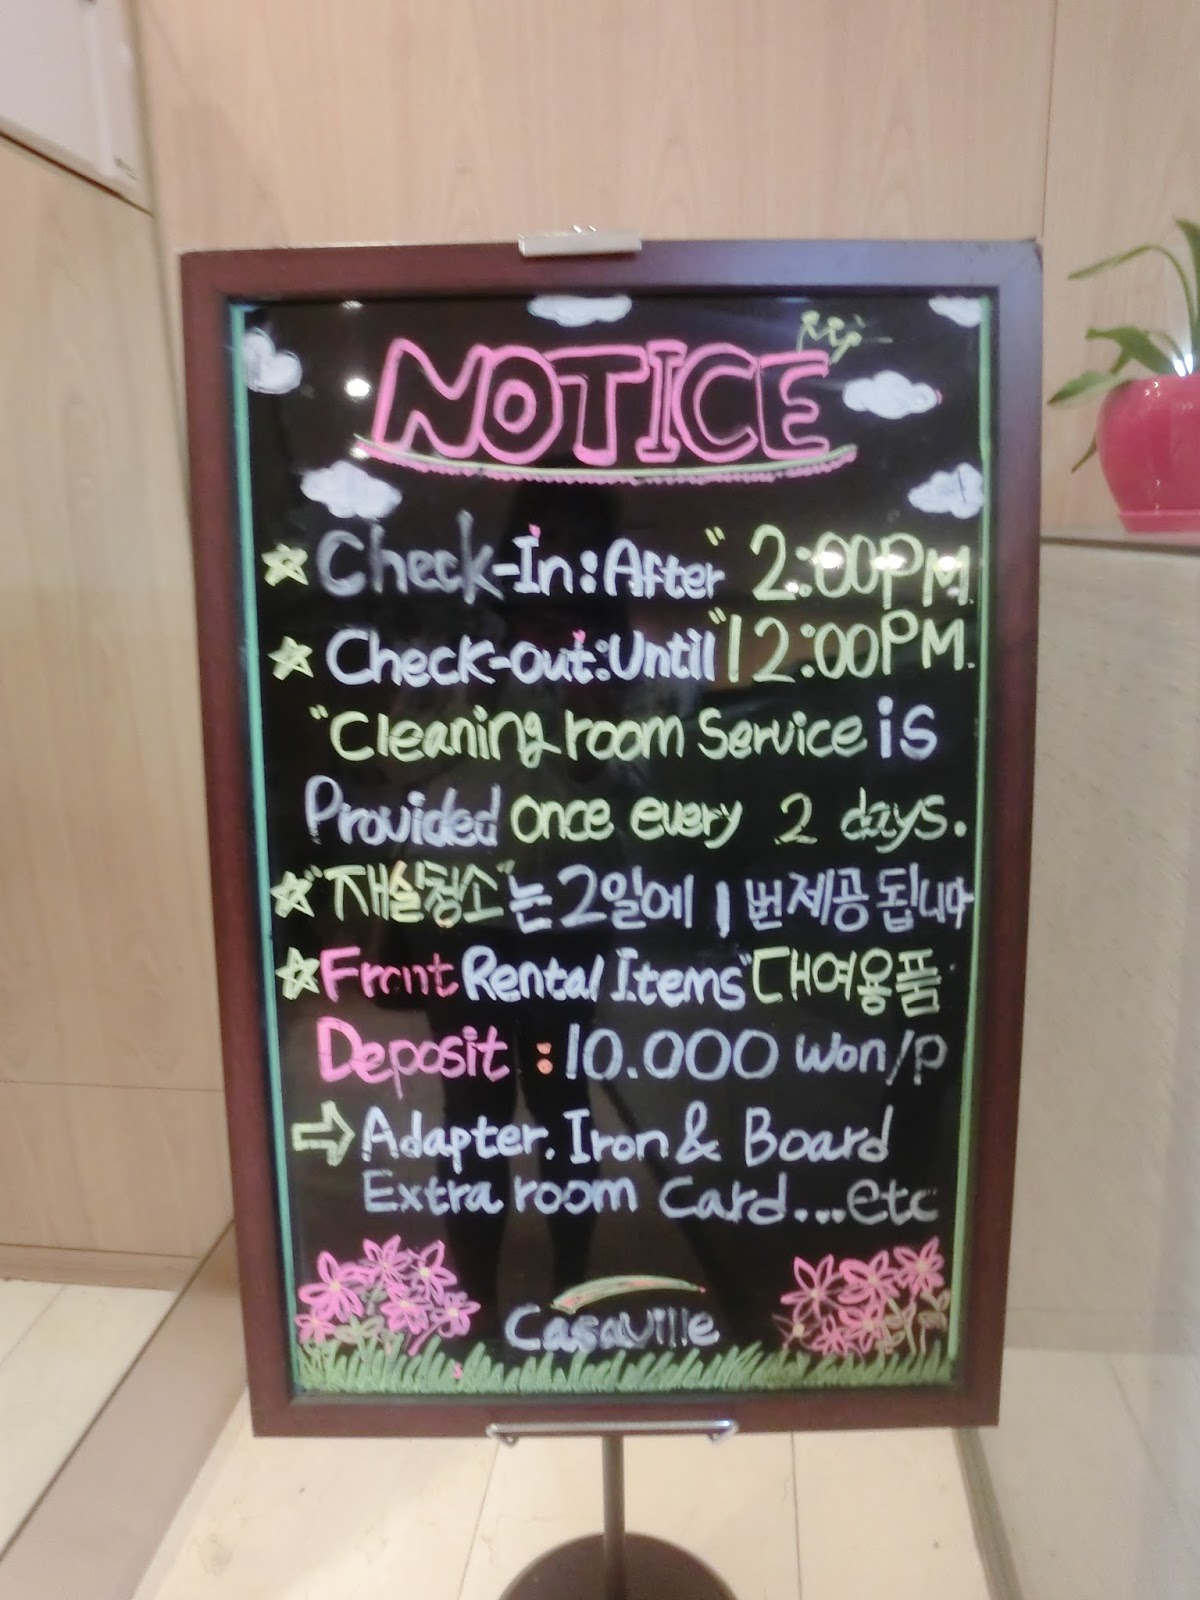 NOTICE
Check-In: After "2:00PM.
Check-out: Until "12:00PM.
"Cleaning room Service is
Provided once every 2 days.
"재실청소"는 2일에 1번 제공 됩니다
Front Rental Items "대여용품
Deposit : 10.000 won/p
Adapter. Iron & Board
Extra room Card...etc
Casaville